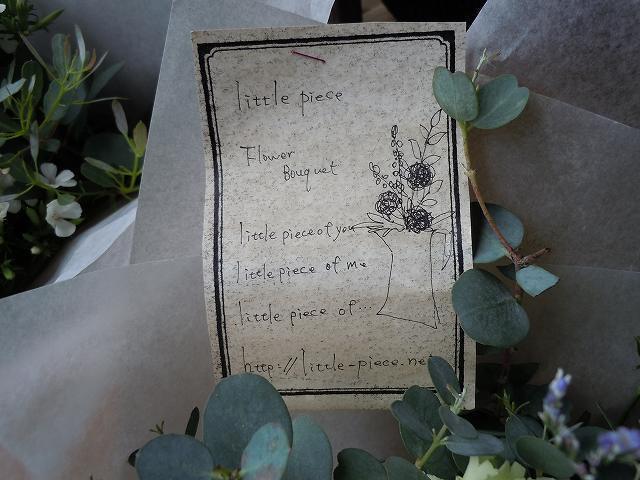 little piece
Flower
Bouquet
little piece of you
little piece of me
little piece of...
http://little-piece.net